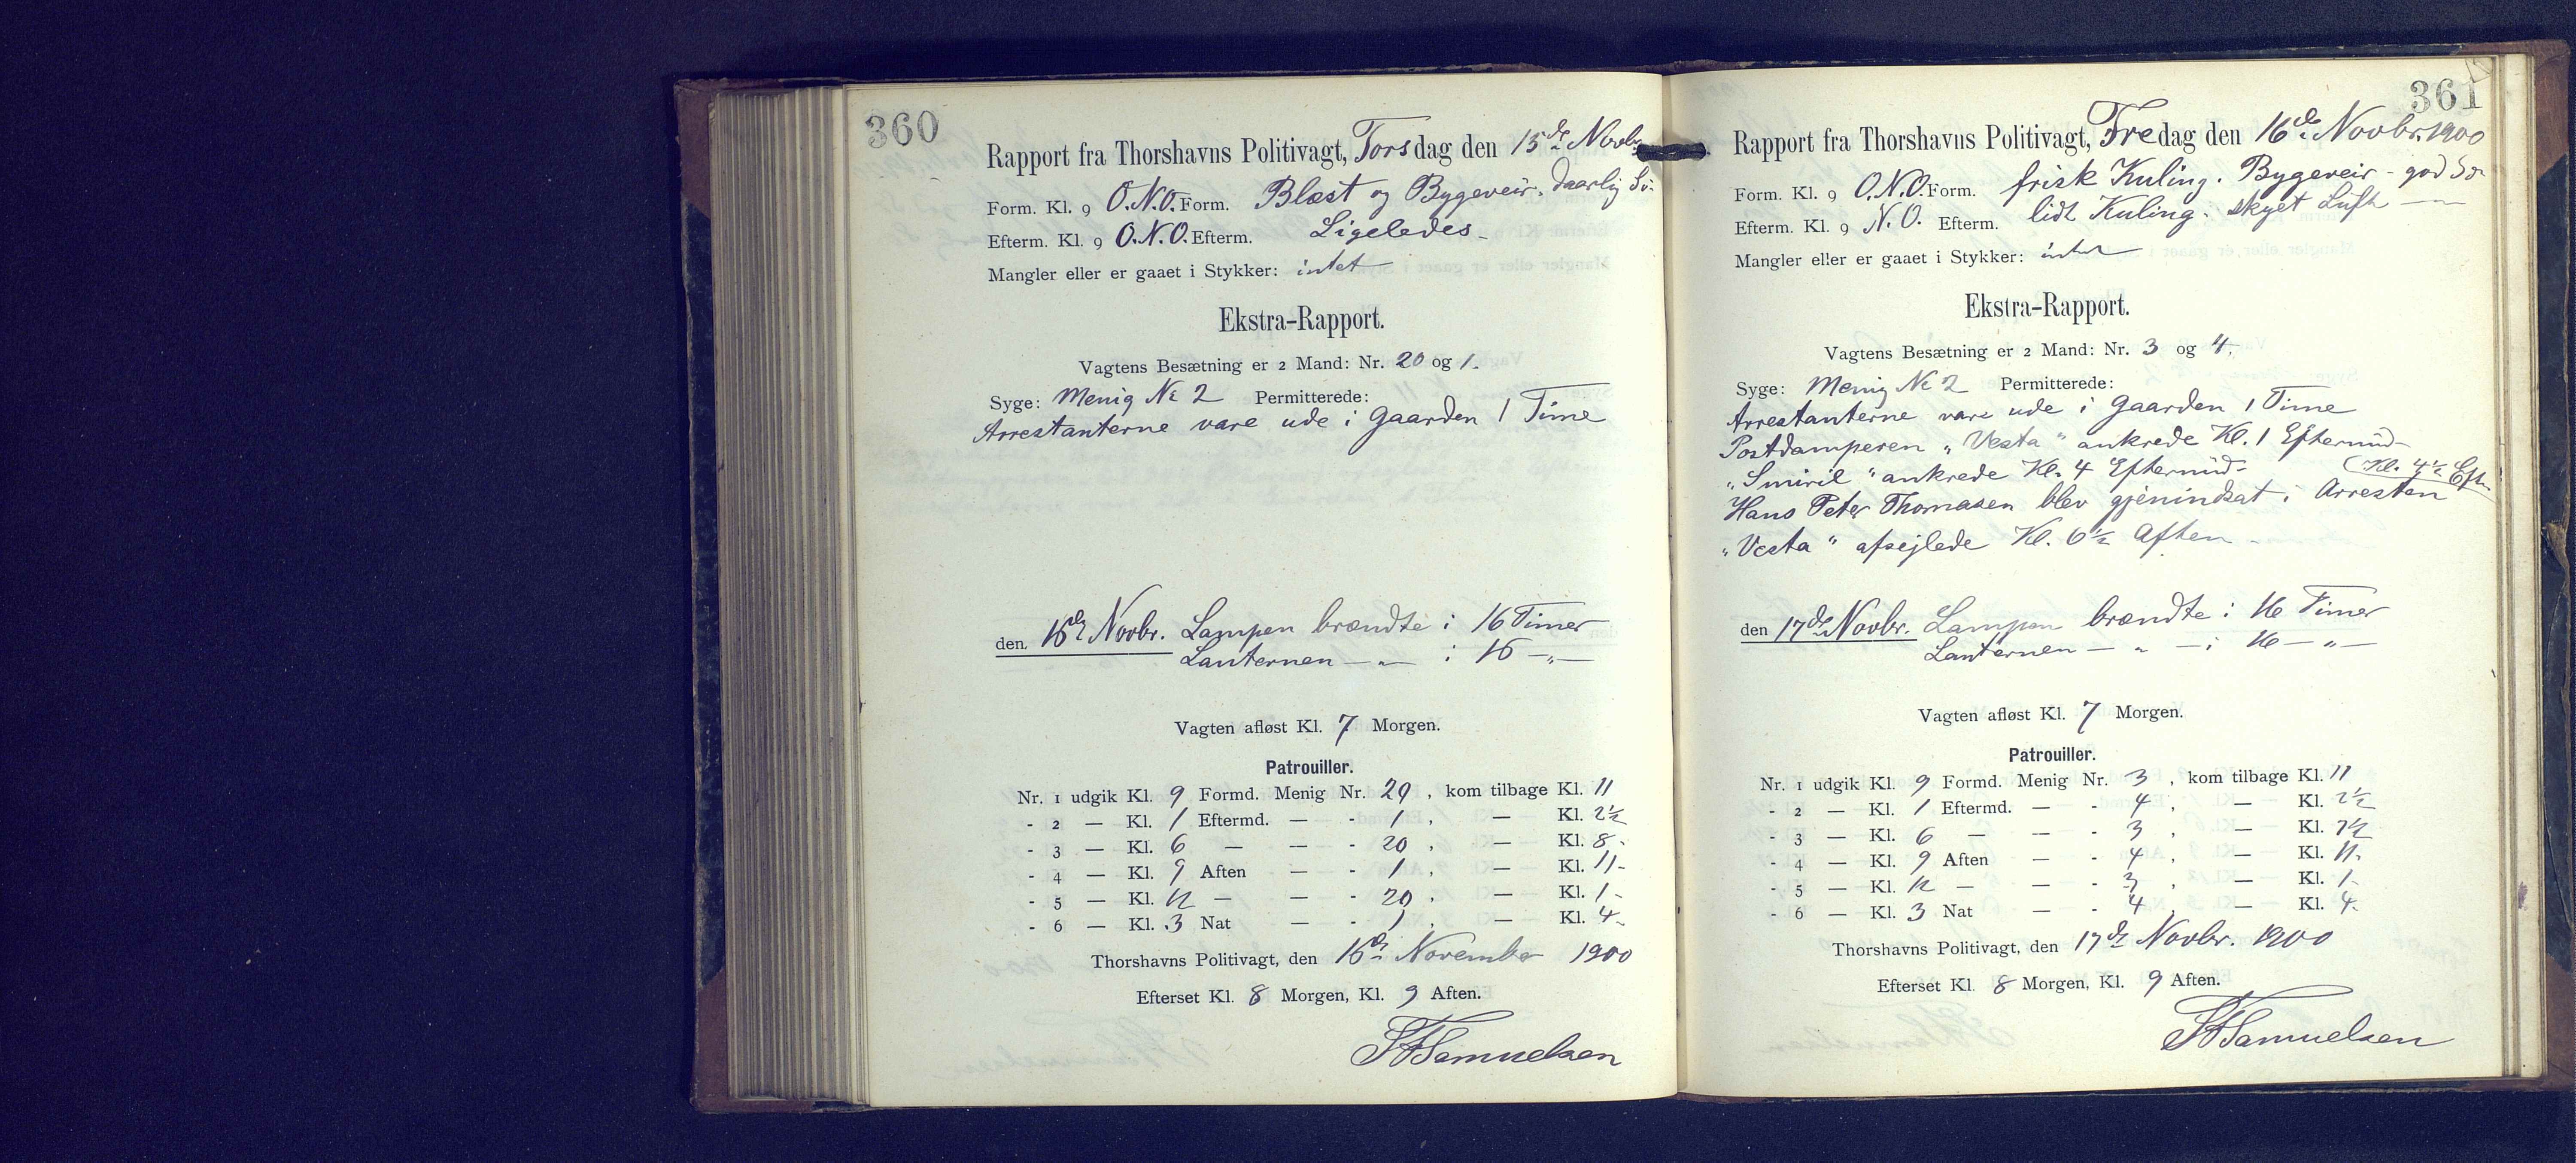 360
Rapport fra Thorshavns Politivagt, Torsdag den 15de Novbr.
Form. Kl. 9 O.N.O. Form. Blæst og Bygeveir. daarlig Sö.
Efterm. Kl. 9 O.N.O. Efterm. Ligeledes
Mangler eller er gaaet i Stykker: intet
Ekstra-Rapport.
Vagtens Besætning er 2 Mand: Nr. 20 og 1.
Syge: Menig No 2 Permitterede:
Arrestanterne vare ude i Gaarden 1 Time
den 16de Novbr. Lampen brændte i 16 Timer
Lanternen — " — i 16 — " —
Vagten afløst Kl. 7 Morgen.
Patrouiller.
Nr. 1 udgik Kl. 9 Formd. Menig Nr. 20, kom tilbage Kl. 11
- 2 — Kl. 1 Eftermd. — - 1, — Kl. 2½
- 3 — Kl. 6 — — - 20, — Kl. 8-
- 4 — Kl. 9 Aften — - 1, — Kl. 11-
- 5 — Kl. 12 — — - 20, — Kl. 1-
- 6 — Kl. 3 Nat — - 1, — Kl. 4-
Thorshavns Politivagt, den 16de November 1900
Efterset Kl. 8 Morgen, Kl. 9 Aften.
Samuelsen
361
Rapport fra Thorshavns Politivagt, Fredag den 16de Novbr. 1900
Form. Kl. 9 O.N.O. Form. frisk Kuling. Bygeveir - god Sö
Efterm. Kl. 9 N.O. Efterm. lidt Kuling. skyet Luft —
Mangler eller er gaaet i Stykker: intet
Ekstra-Rapport.
Vagtens Besætning er 2 Mand: Nr. 3 og 4.
Syge: Menig No 2 Permitterede:
Arrestanterne vare ude i Gaarden 1 Time
Postdamperen „Vesta" ankrede Kl. 1 Eftermid-
„Smiril" ankrede Kl. 4 Eftermid- (Kl. 4½ Eft.
Hans Peter Thomasen blev gjenindsat i Arresten
„Vesta" afsejlede Kl. 6½ Aften -
den 17de Novbr. Lampen brændte i 16 Timer
Lanternen — " — i 16 — " —
Vagten afløst Kl. 7 Morgen.
Patrouiller.
Nr. 1 udgik Kl. 9 Formd. Menig Nr. 3, kom tilbage Kl. 11
- 2 — Kl. 1 Eftermd. — - 4, — Kl. 2½
- 3 — Kl. 6 — — - 3, — Kl. 7½
- 4 — Kl. 9 Aften — - 4, — Kl. 11-
- 5 — Kl. 12 — — - 3, — Kl. 1-
- 6 — Kl. 3 Nat — - 4, — Kl. 4-
Thorshavns Politivagt, den 17de Novbr. 1900
Efterset Kl. 8 Morgen, Kl. 9 Aften.
Samuelsen